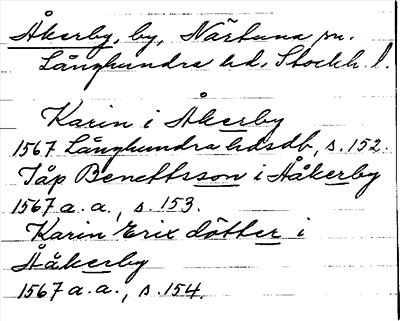 Åkerby, by, Närtuna sn.
Långhundra hd, Stockh. l.
Karin i Åkerby
1567 Långhundra hdsdb, s. 152.
Jåp Benettsson i Ååkerby
1567 a. a., s. 153.
Karin Erix dötter i
Ååkerby
1567 a. a., s. 154.